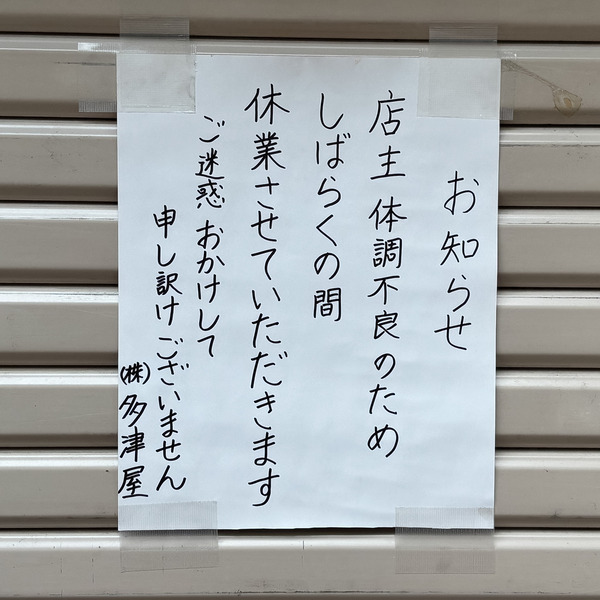 お知らせ
店主 体調不良のため
しばらくの間
休業させていただきます
ご迷惑 おかけして
申し訳けございません
(株)多津屋